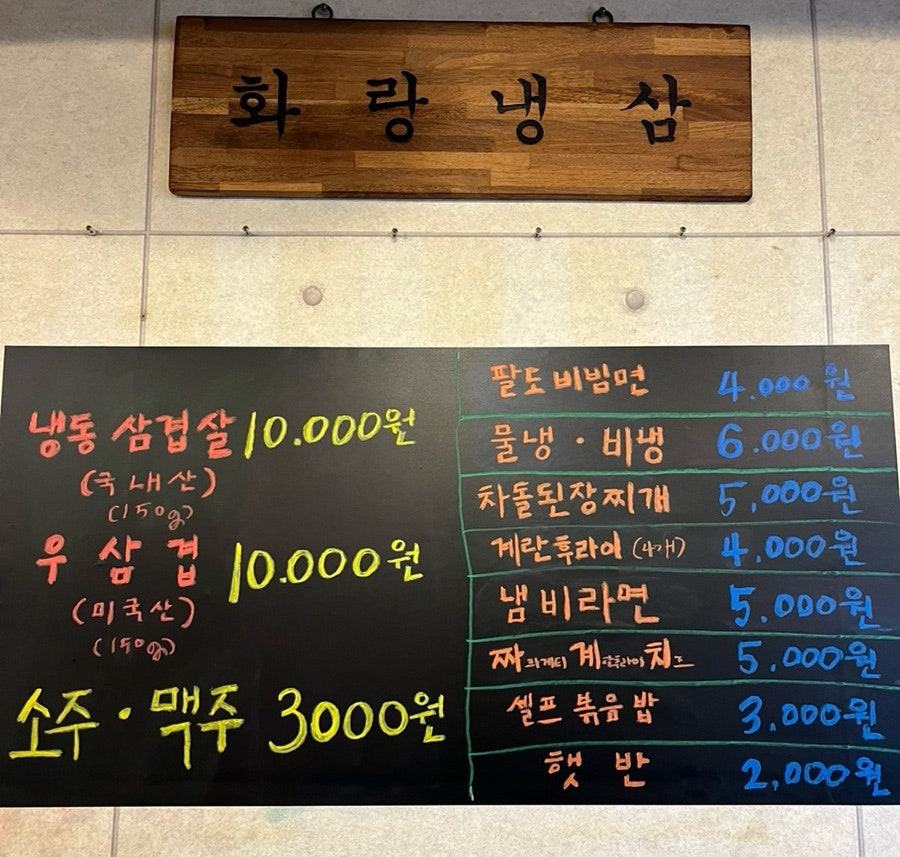 화랑냉삼
냉동 삼겹살 10.000원
(국내산)
(150g)
우삼겹 10.000원
(미국산)
(150g)
소주·맥주 3000원
팔도비빔면 4.000원
물냉·비냉 6.000원
차돌된장찌개 5,000원
계란후라이 (4개) 4,000원
냄비라면 5.000원
짜파게티계란후라이치즈 5,000원
셀프볶음밥 3,000원
햇반 2,000원